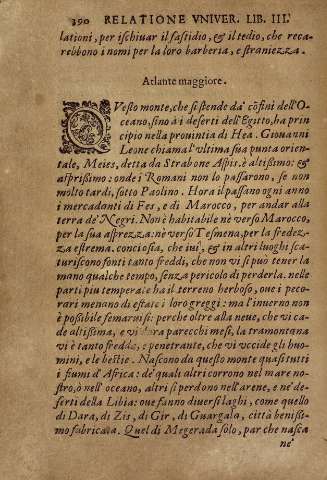 390 RELATIONE VNIVER. LIB. III.
lationi, per ischiuar il fastidio, & il tedio, che reca-
rebbono i nomi per la loro barberia, e straniezza.
Atlante maggiore.
QVesto monte, che si stende da' cõfini dell'O-
ceano, sino à i deserti dell'Egitto, ha prin
cipio nella prouintia di Hea. Giouanni
Leone chiama l'vltima sua punta orien-
tale, Meies, detta da Strabone Aspis. è altissimo; &
asprissimo: onde i Romani non lo passarono, se non
molto tardi, sotto Paolino. Hora il passano ogni anno
i mercadanti di Fes, e di Marocco, per andar alla
terra de' Negri. Non è habitabile nè verso Marocco,
per la sua asprezza: nè verso Tesmena, per la fredez-
za estrema. conciosia, che iui, & in altri luoghi sca-
turiscono fonti tanto freddi, che non vi si può tener la
mano qualche tempo, senza pericolo di perderla. nelle
parti piu temperate ha il terreno herboso, oue i peco-
rari menano di estate i loro greggi: ma l'inuerno non
è possibile semaruisi: perche oltre alla neue, che vi ca-
de altissima, e vi dura parecchi mesi, la tramontana
vi è tanto fredda, e penetrante, che vi vccide gli huo-
mini, e le bestie. Nascono da questo monte quasi tutti
i fiumi d'Africa: de' quali altri corrono nel mare no-
stro, ò nell' oceano, altri si perdono nell' arene, e ne' de-
serti della Libia: oue fanno diuersi laghi, come quello
di Dara, di Zis, di Gir, di Guargala, città benissi-
mo fabricata. Quel di Megerada solo, par che nasca
ne'